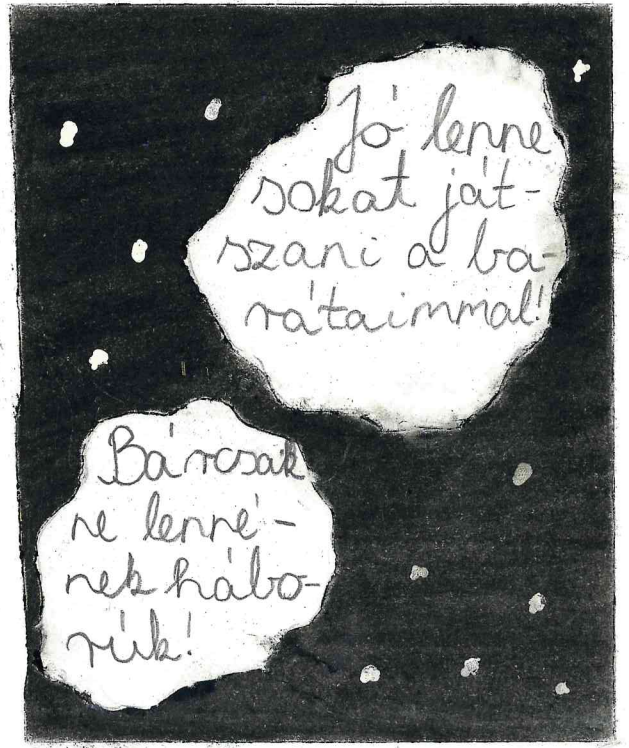 Jó lenne
sokat ját-
szani a ba-
rátaimmal!
Bárcsak
ne lenné-
nek hábo-
rúk!